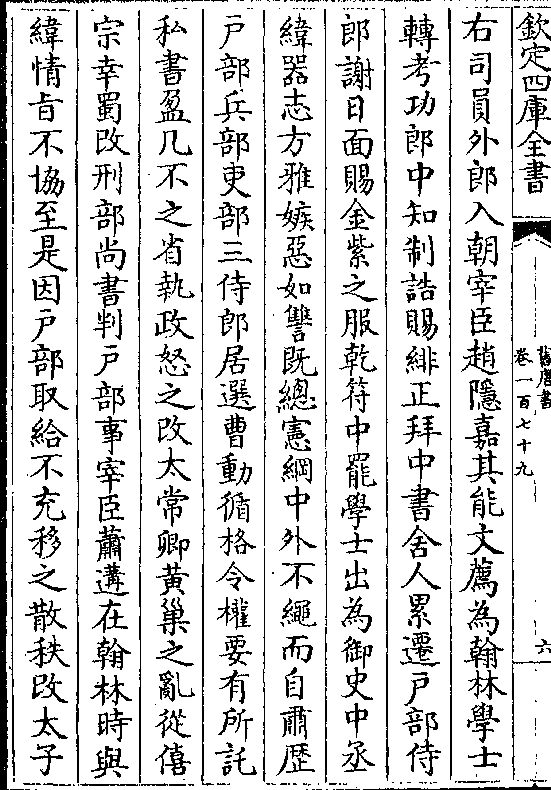 欽定四庫全書
舊唐書
卷一百七十九
六
右司員外郎入朝宰臣趙隱嘉其能文薦為翰林學士
轉考功郎中知制誥賜緋正拜中書舍人累遷戸部侍
郎謝日面賜金紫之服乾符中罷學士出為御史中丞
緯器志方雅嫉惡如讐既總憲綱中外不繩而自肅歴
戸部兵部吏部三侍郎居選曹動循格令權要有所託
私書盈几不之省執政怒之改太常卿黄巢之亂從僖
宗幸蜀改刑部尚書判戸部事宰臣蕭遘在翰林時與
緯情旨不協至是因戸部取給不充移之散秩改太子